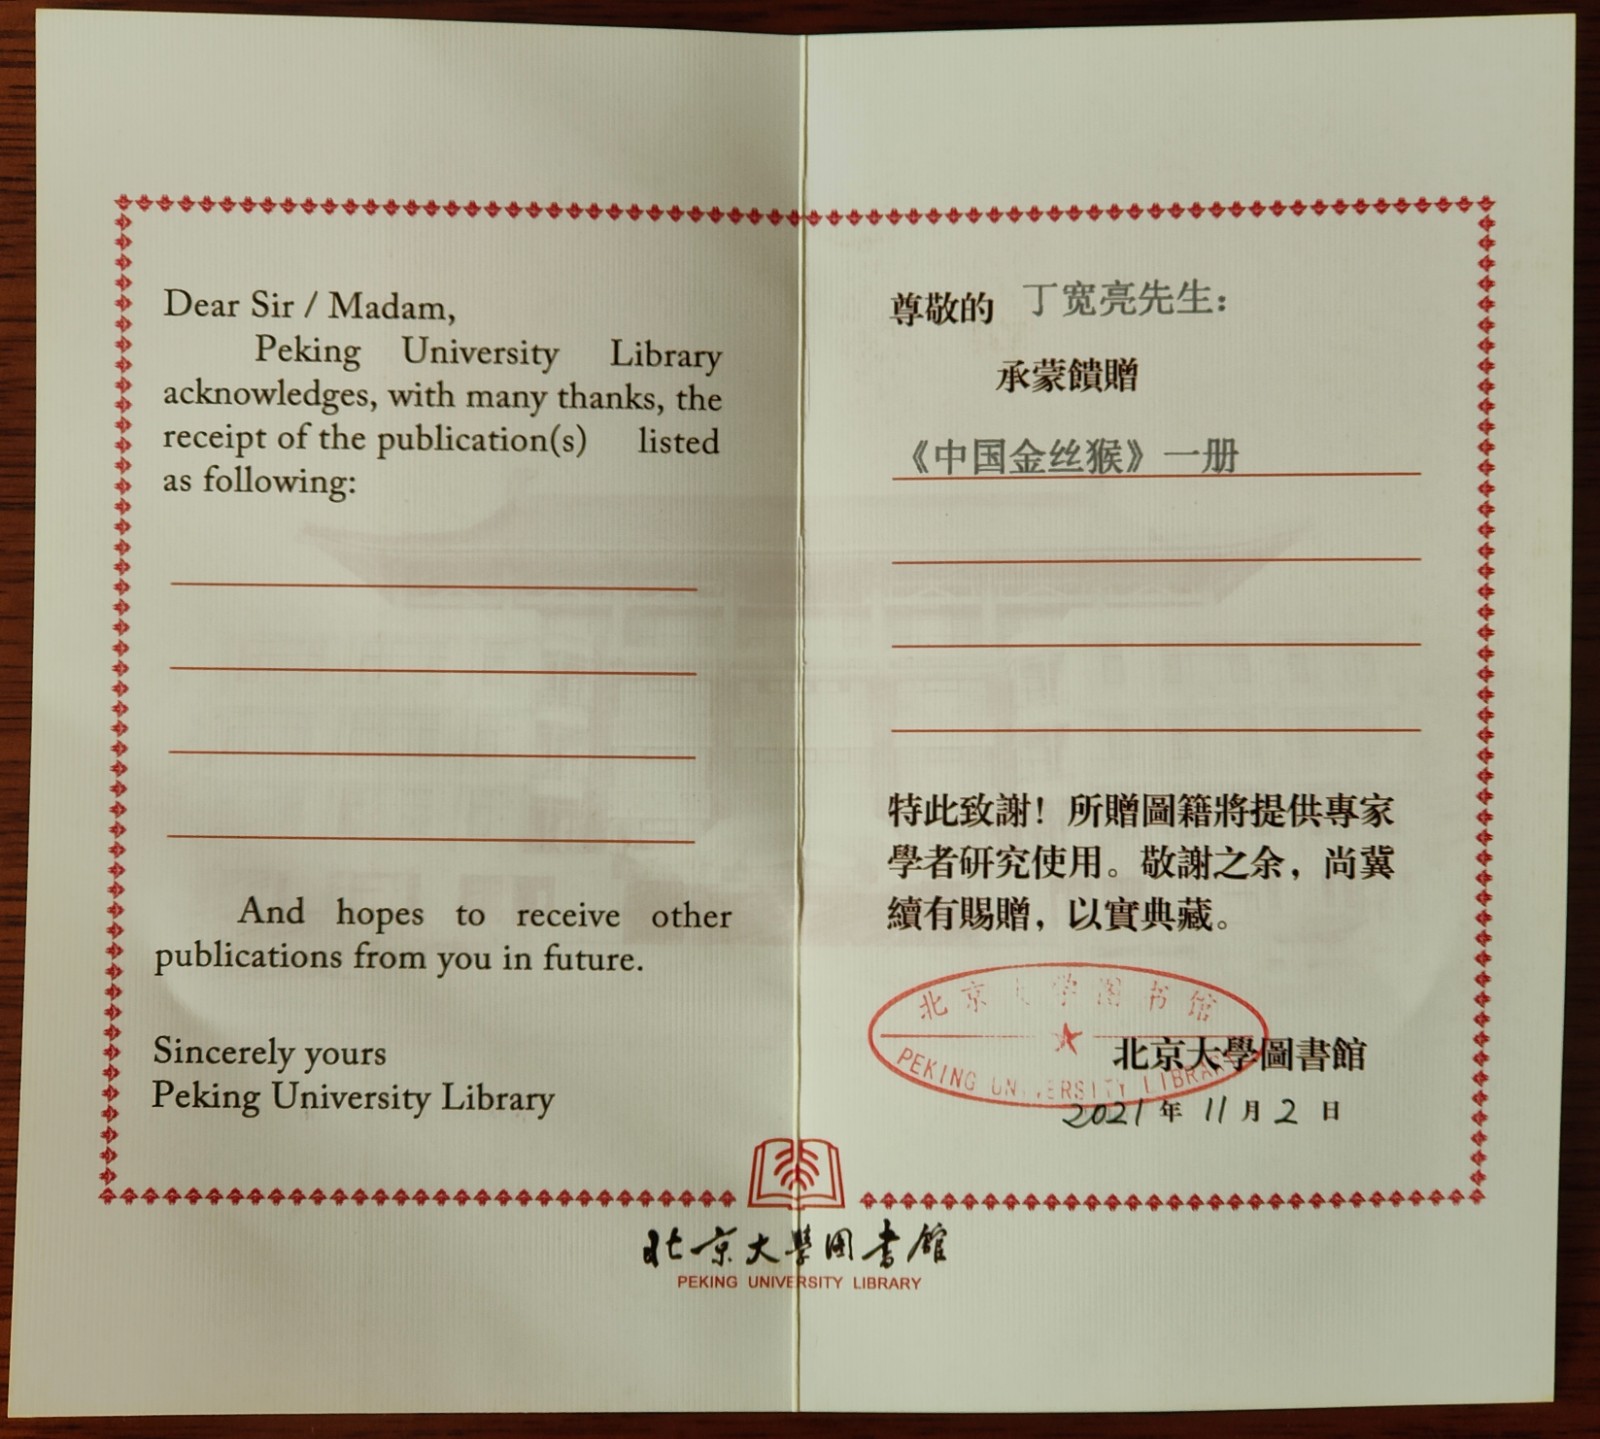 Dear Sir / Madam,
Peking University Library
acknowledges, with many thanks, the
receipt of the publication(s) listed
as following:
And hopes to receive other
publications from you in future.
Sincerely yours
Peking University Library
尊敬的 丁宽亮先生：
承蒙饋贈
《中国金丝猴》一册
特此致謝！所贈圖籍將提供專家
學者研究使用。敬謝之余，尚冀
續有賜贈，以實典藏。
北京大学图书馆
PEKING UNIVERSITY LIBRARY
北京大學圖書館
2021 年 11 月 2 日
北京大學图書館
PEKING UNIVERSITY LIBRARY